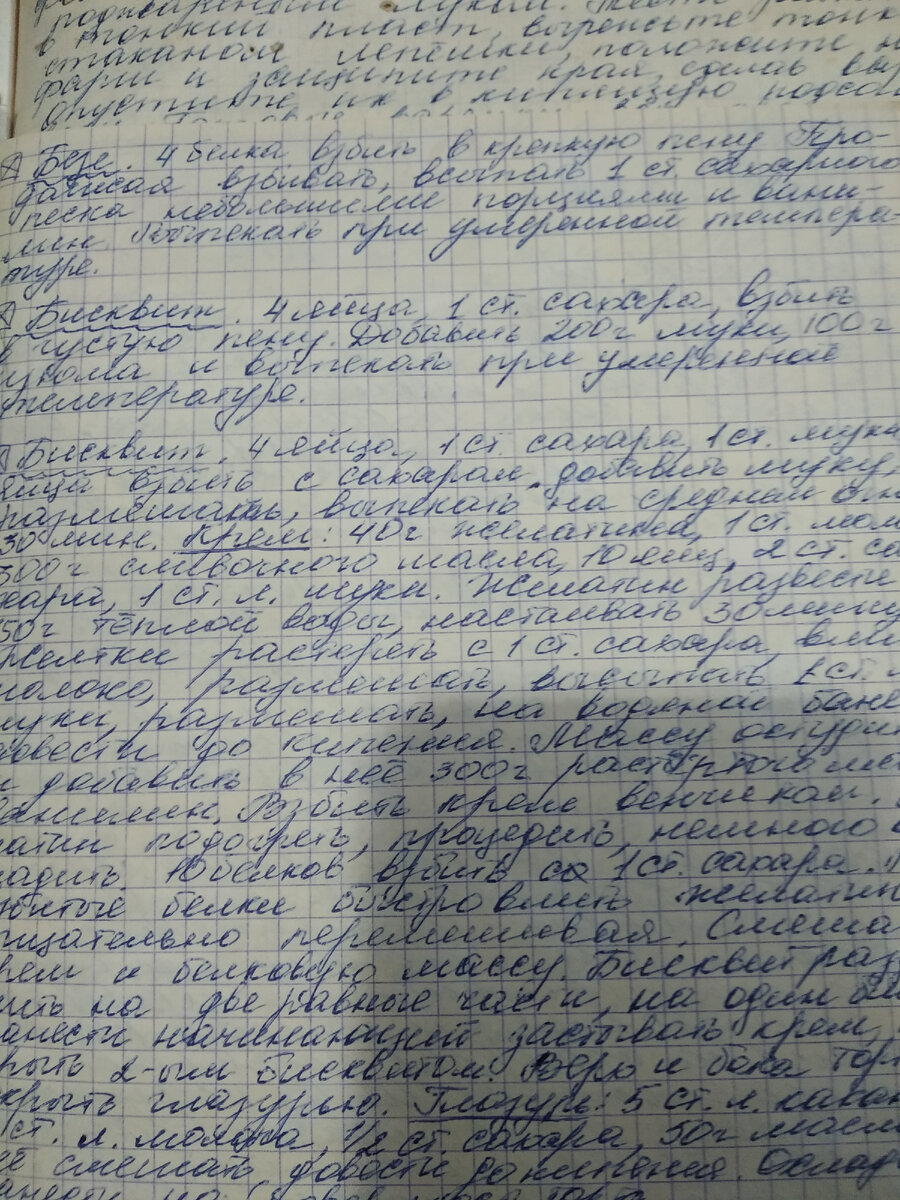 поджаренный луком. Тесто
в тонкий пласт, вырежьте тонк
стаканом лепёшки, положите н
фарш и защипите края, сделав
опустите их в кипящую подсол
Безе. 4 белка взбить в крепкую пену Про-
должая взбивать, всыпать 1 ст. сахарного
песка небольшими порциями и вани-
лин Выпекать при умеренной темпера-
туре.
Бисквит. 4 яйца, 1 ст. сахара, взбить
в густую пену. Добавить 200г муки, 100г
изюма и выпекать при умеренной
температуре.
Бисквит. 4 яйца, 1 ст. сахара, 1 ст. мука
яйца взбить с сахаром, добавить муку,
размешать, выпекать на среднем огн
30 мин. Крем: 40г желатина, 1 ст. мол
300г сливочного масла, 10 яиц, 2 ст. са
хара, 1 ст. л. муки. Желатин развести
50г тёплой воды, настаивать 30 мину
Желтки растереть с 1 ст. сахара, вли
молоко, размешать, всыпать 1 ст. л
муки, размешать, на водяной бане
довести до кипения. Массу остуди
и добавить в неё 300г растёртого ма
ванилин. Взбить крем венчиком.
латин подогреть, процедить, немного
ладить. 10 белков взбить со 1 ст. сахара.
взбитые белки быстро влить желатин
тщательно перемешивая. Смеша
крем и белковую массу. Бисквит раз
лить на две равные части, на один би
нанести начинающий застывать крем,
крыть 2-ым бисквитом. Верх и бока торт
крыть глазурью. Глазурь: 5 ст. л. какао
ст. л. молока, 1/2 ст. сахара, 50г масла
всё смешать, довести до кипения. Охлад